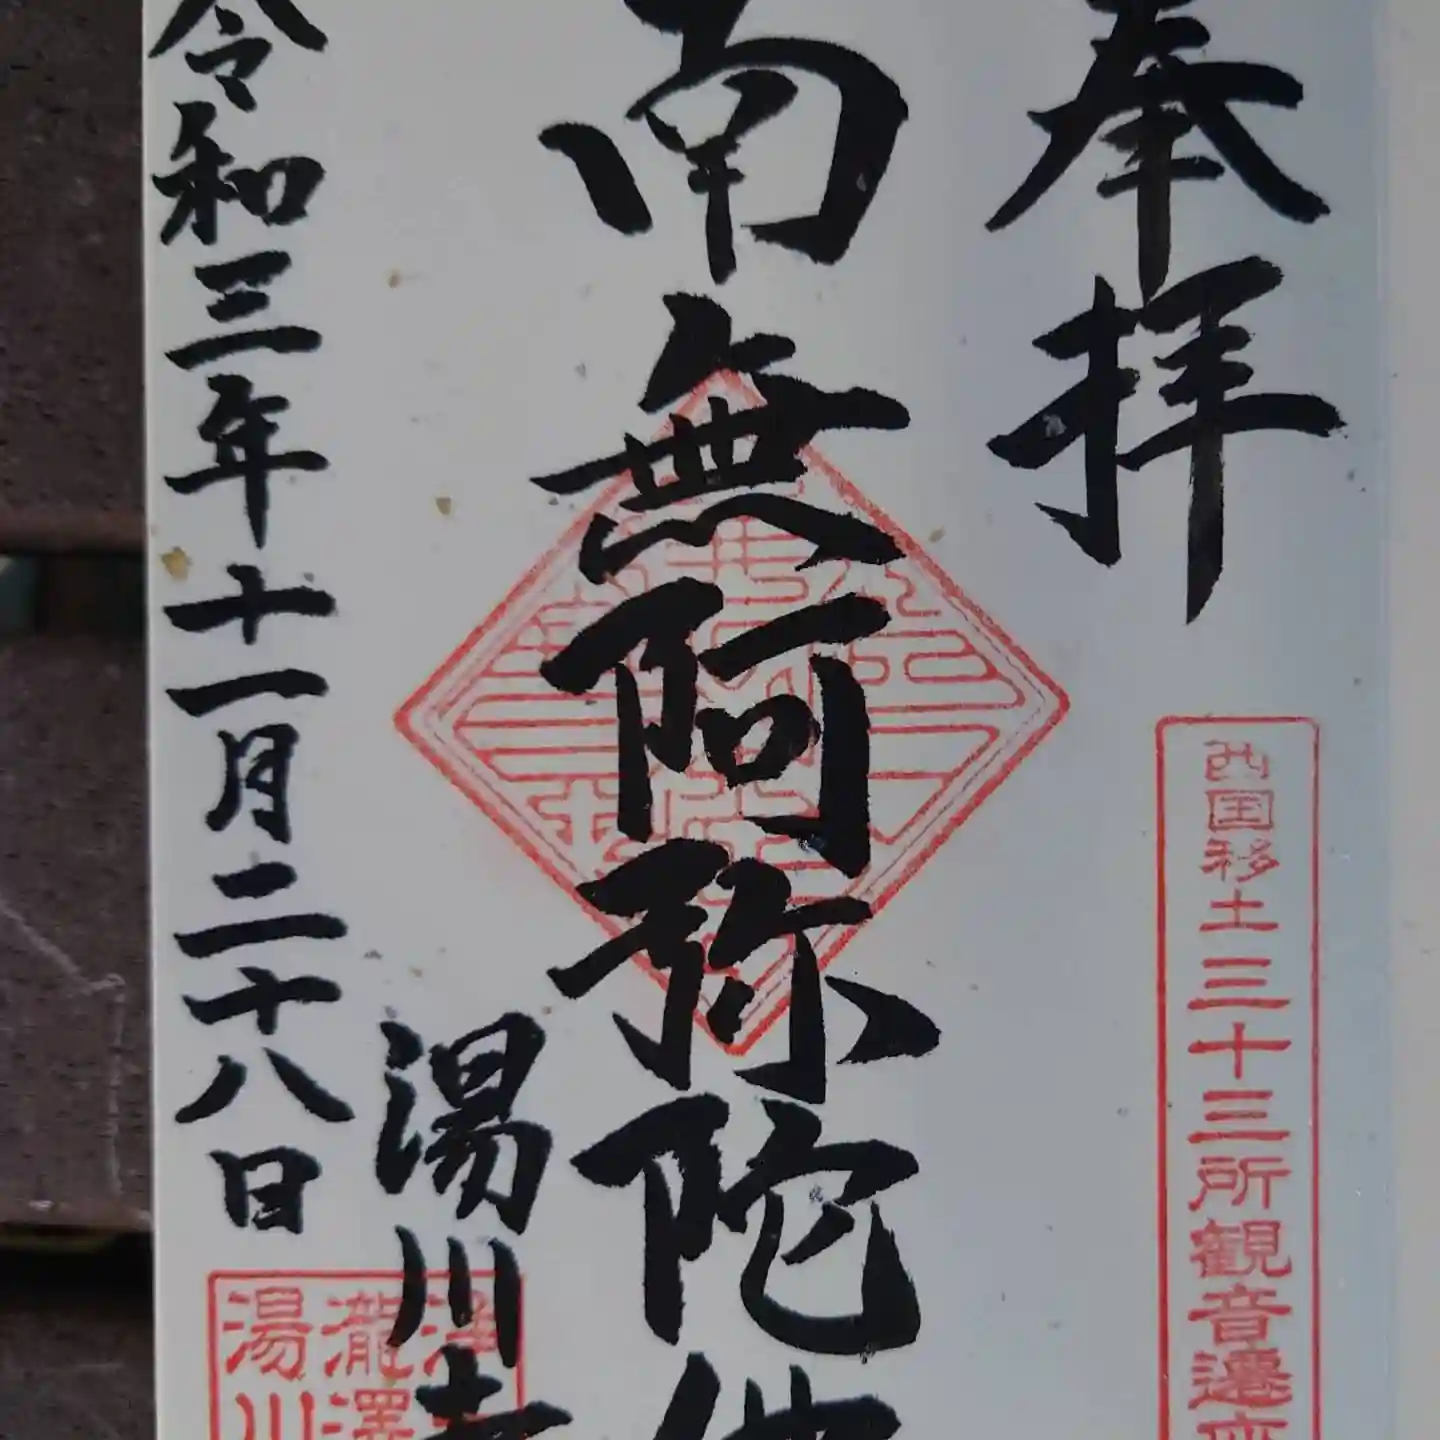 奉拝
西国移土三十三所観音遷座
南無阿弥陀佛
湯川寺
令和三年十一月二十八日
浄
瀧澤
湯川